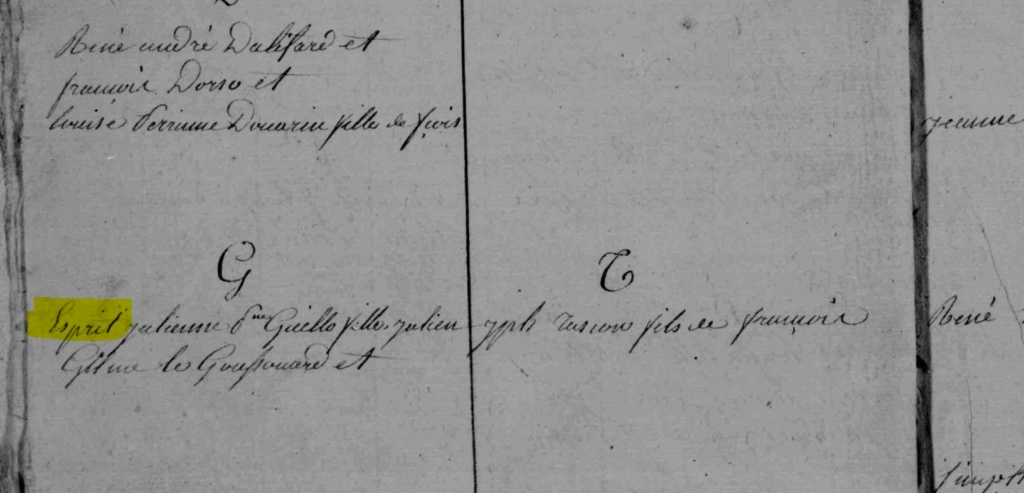 René andré Dalifard et
françois Dorso et
louise Perrinne Douarin fille de fçois
G
Esprit julienne Pne Guillo fille julien
le Goussouard et
T
jph tasion fils de françois
jeanne
René